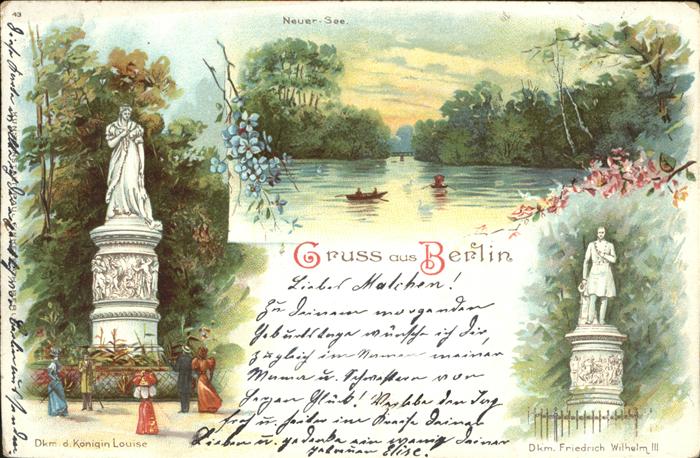 43
Neuer-See.
Gruss aus Berlin
Liebes Malchen!
Zu Deinem morgenden
Geburtstage wünsche ich Dir,
zugleich im Namen meiner
Mama u. Schwestern von
Herzen Glück! Verlebe den Tag
froh u. heiter im Kreise Deiner
Lieben u. gedenke ein wenig Deiner
Elise.
Dkm. d. Königin Louise
Dkm. Friedrich Wilhelm III